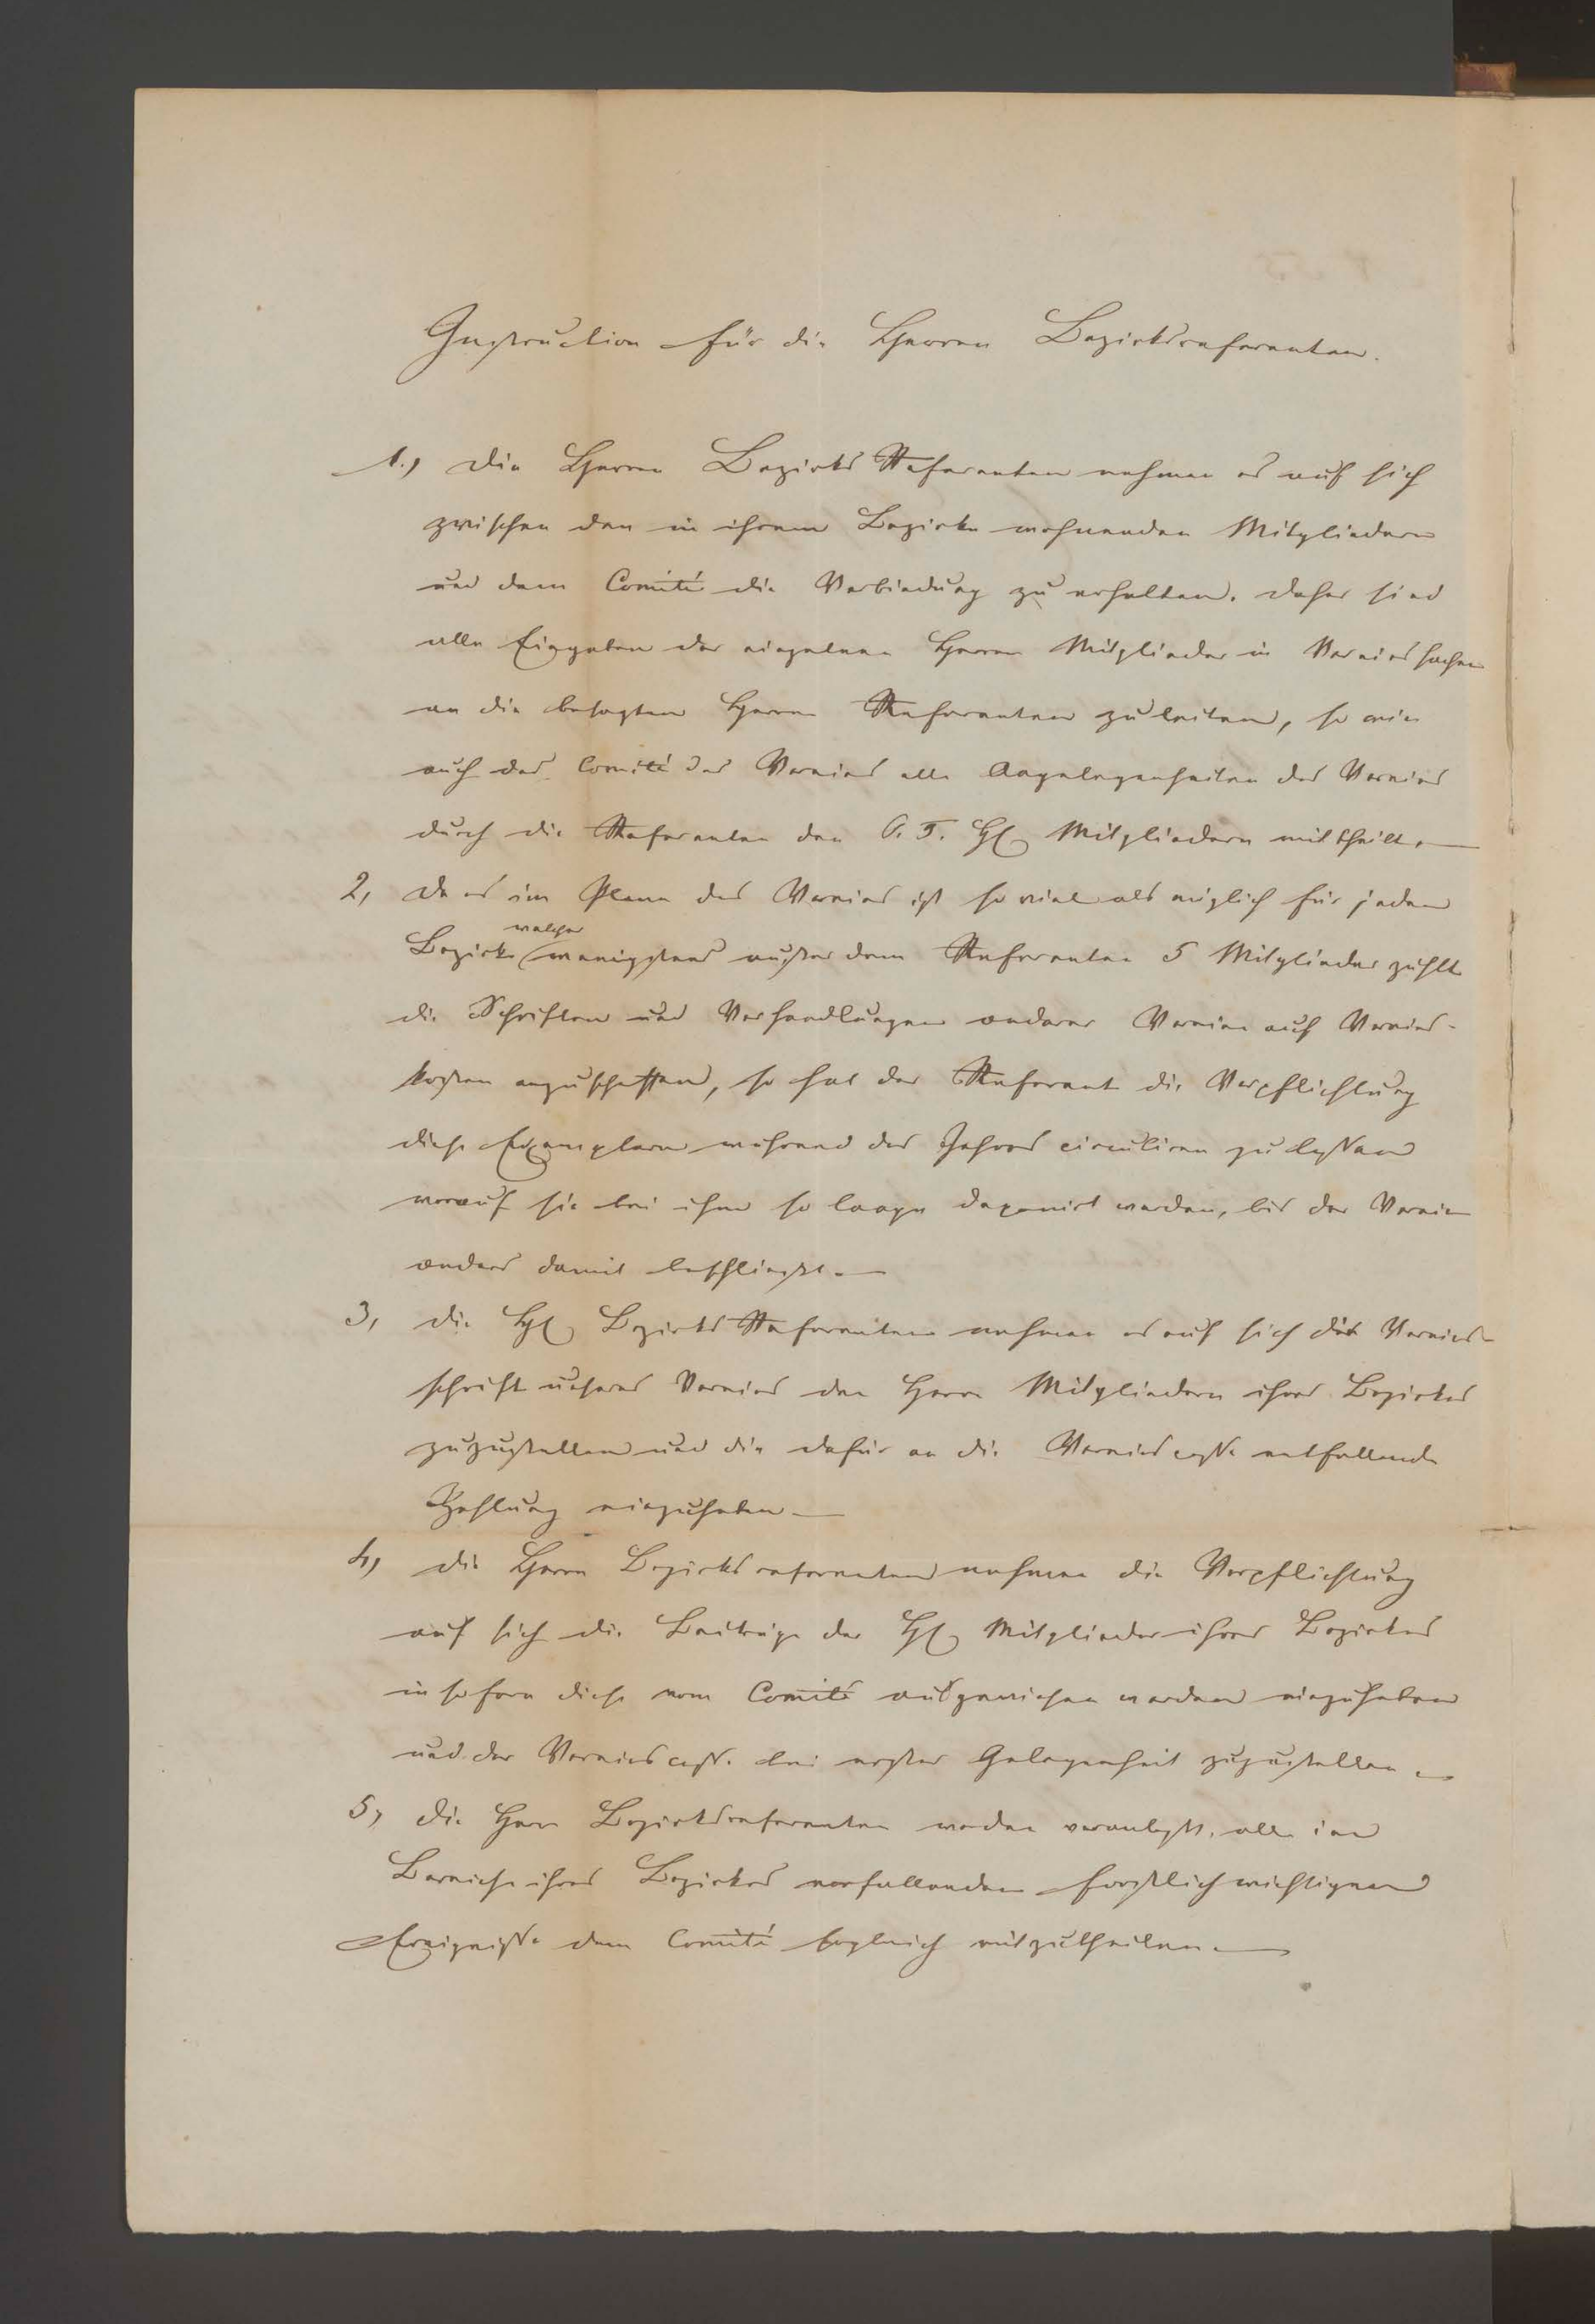 Instruction für die Herren Bezirksreferenten.
1.) Die Herren Bezirks Referenten nehmen es auf sich
zwischen den in ihrem Bezirke wohnenden Mitgliedern
und dem Comité die Verbindung zu erhalten. Daher sind
alle Eingaben der einzelnen Herren Mitglieder in Vereinssachen
an die besagten Herren Referenten zu leiten, so wie
auch das Comité des Vereins alle Angelegenheiten des Vereins
durch die Referenten den P. T. HH Mitgliedern mittheilt. —
2, Da es im Plane des Vereins ist so viel als möglich für jeden
welcher
Bezirk wenigstens außer dem Referenten 5 Mitglieder zählt
die Schriften und Verhandlungen anderer Vereine auf Vereins-
kosten anzuschaffen, so hat der Referent die Verpflichtung
diese Exemplare während des Jahres circuliren zu lassen
worauf sie bei ihm so lange deponirt werden, bis der Verein
anders damit beschließt. —
3, Die HH Bezirks Referenten nehmen es auf sich die Vereins-
schrift unseres Vereins den Herrn Mitgliedern ihres Bezirkes
zuzustellen und die dafür an die Vereinscasse entfallende
Zahlung einzuheben —
4, Die Herrn Bezirksreferenten nehmen die Verpflichtung
auf sich die Beiträge der HH Mitglieder ihres Bezirkes
in sofern diese vom Comité ausgewiesen werden einzuheben
und der Vereinscasse bei erster Gelegenheit zuzustellen —
5, Die Herrn Bezirksreferenten werden veranlaßt, alle im
Bereiche ihres Bezirkes vorfallenden forstlich wichtigen
Ereignisse dem Comité sogleich mitzutheilen. —